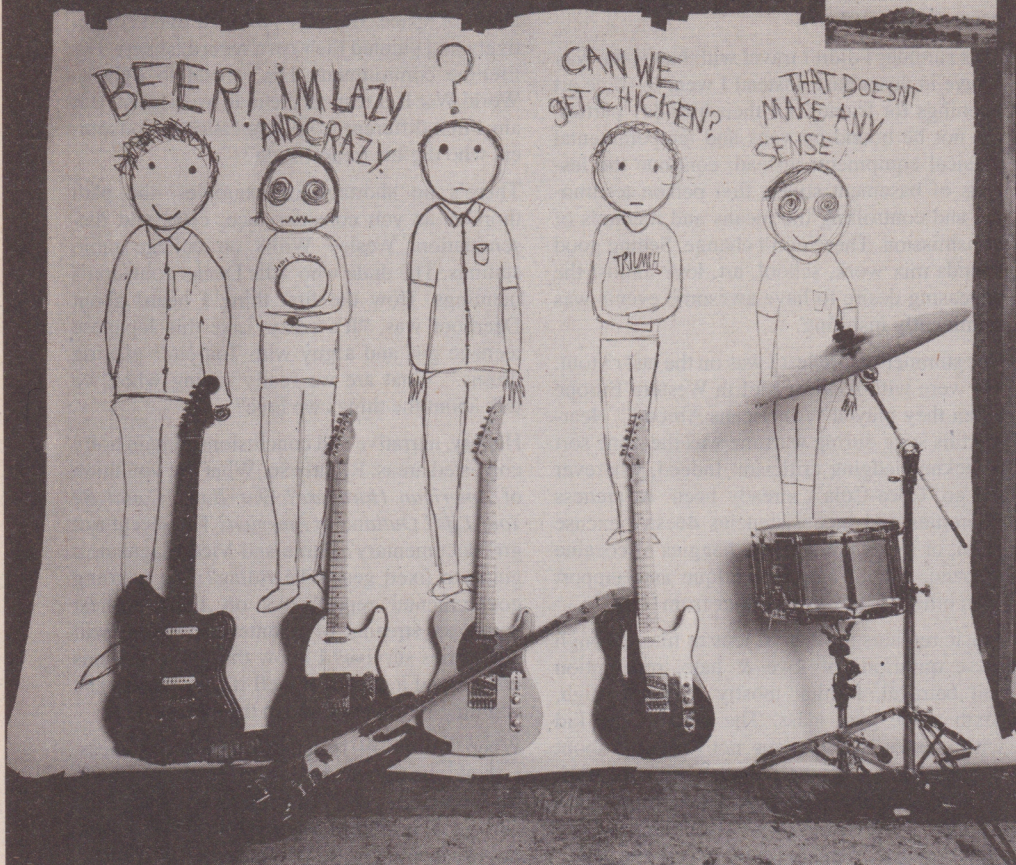 BEER!
iM LAZY
AND CRAZY
?
CAN WE
gET CHICKEN?
THAT DOESNT
MAKE ANY
SENSE!
TRIUMPH